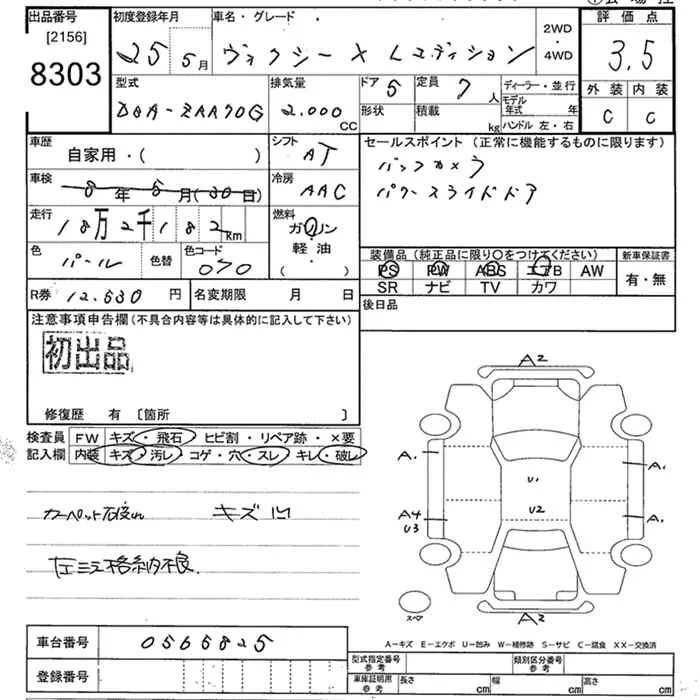 出品番号
[2156]
8303
初度登録年月
25 5月
車名・グレード
ヴォクシー X Lエディション
2WD
・
4WD
評価点
3.5
外装 内装
C C
型式
DBA-ZRR70G
排気量
2.000
CC
ドア 5
形状
定員 7人
積載 kg
ディーラー・並行
モデル年式 年
ハンドル 左・右
車歴
自家用・( )
シフト
AT
車検
8年5月(30日)
冷房
AAC
走行
18万2千182Km
燃料
ガソリン
軽油
( )
色
パール
色替
色コード
070
R券 12.530円
名変期限 月 日
セールスポイント (正常に機能するものに限ります)
バックカメラ
パワースライドドア
装備品 (純正品に限り〇をつけてください)
PS PW ABS エアB AW
SR ナビ TV カワ
新車保証書
有・無
後日品
注意事項申告欄(不具合内容等は具体的に記入して下さい)
初出品
修復歴 有 〔箇所 〕
検査員
記入欄
FW キズ・飛石 ヒビ割・リペア跡・×要
内装 キズ・汚レ・コゲ・穴・スレ・キレ・破レ
キズ凹
左ミラー格納不良
A2
A1
A1
U1
U2
A4
U3
A1
A2
スペア
A-キズ E-エクボ U-凹み W-補修跡 S-サビ C-腐食 XX-交換済
車台番号 0565825
登録番号
型式指定番号
参考
類別区分番号
参考
車庫証明用
参考
長さ cm 幅 cm 高さ cm